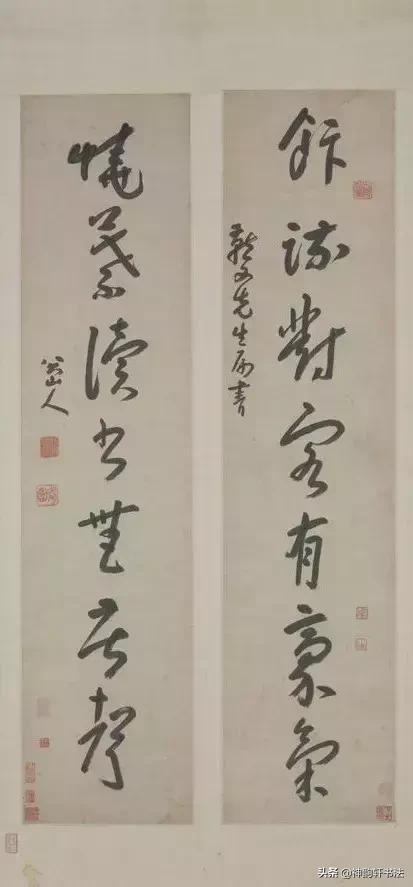 飰疏對客有豪氣
先生屬書
燒葉讀書無苦聲
八大山人
头条 @神韵轩书法